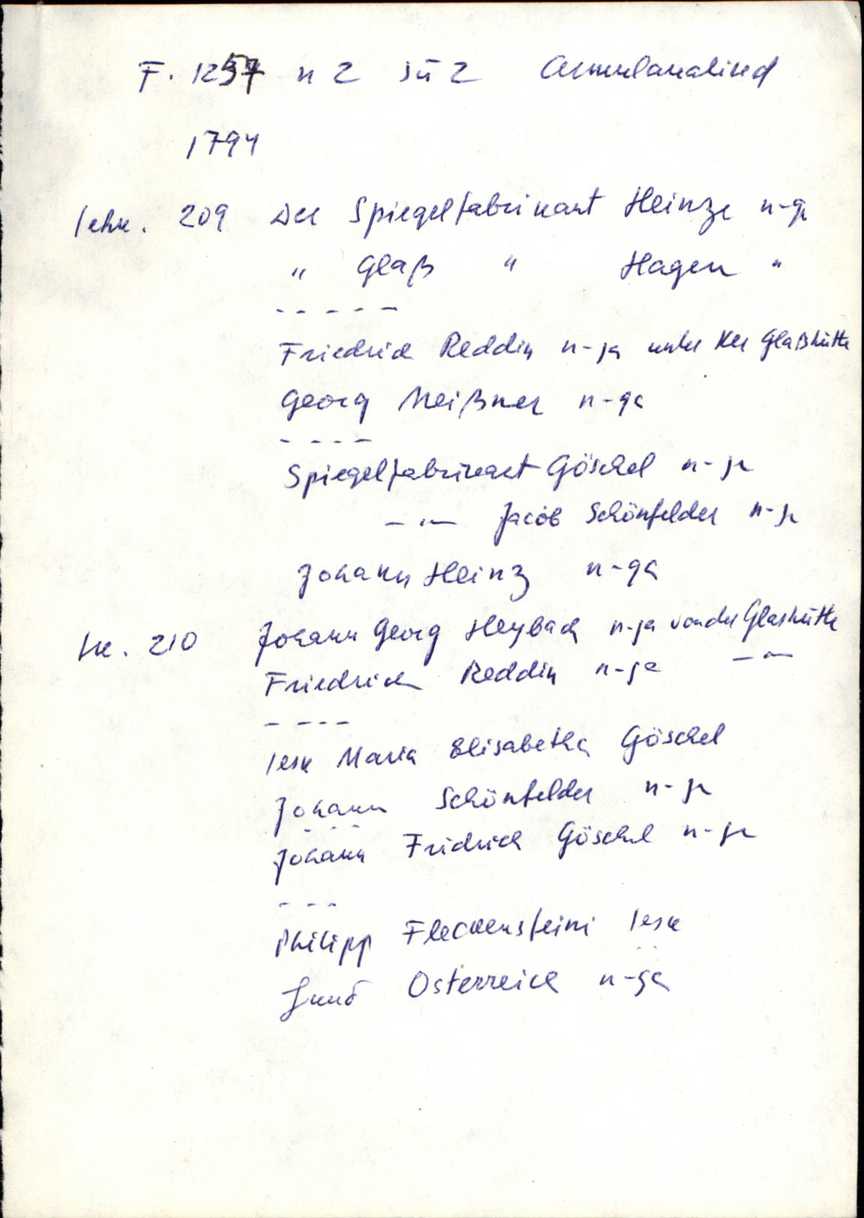 F. 1257 n 2 sü 2
1794
lehk. 209 Der Spiegelfabrikant Heinze n-ga
" Glaß " Hagen "
- - - - -
Friedrich Reddin n-ga unter der Glaßhütte
Georg Meißner n-ga
- - - -
Spiegelfabrikant Göschel n-ga
— " — Jacob Schönfelder n-ga
Johann Heinz n-ga
lk. 210 Johann Georg Heybach n-ga von der Glashütte
Friedrich Reddin n-ga — " —
- - - -
lesk Maria Elisabetha Göschel
Johann Schönfelder n-ga
Johann Fridrich Göschel n-ga
- - -
Philipp Fleckensteini lesk
Österreich n-ga